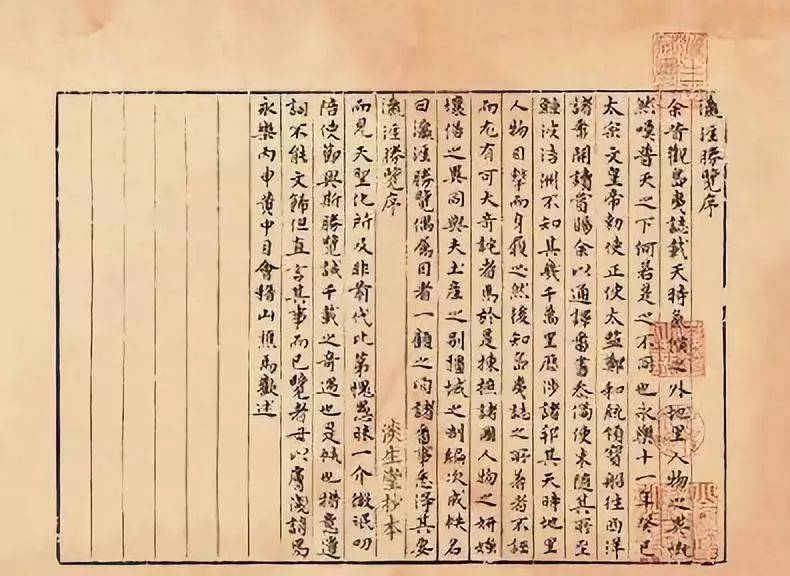 瀛涯勝覽序
余昔觀島夷誌載天時氣候之外地里人物之異慨
然嘆普天之下何若是之不同也永樂十一年癸巳
太宗文皇帝勅使正使太監鄭和統領寶船往西洋
諸番開讀賞賜余以通譯番書忝備使末隨其所至
鯨波浩渺不知其幾千萬里歷涉諸邦其天時地里
人物目擊而身履之然後知島夷誌之所著者不誣
而尤有可大奇詫者焉於是採摭諸國人物之妍媸
壤俗之異同與夫土產之別疆域之制編次成帙名
曰瀛涯勝覽俾屬目者一顧之間諸番事悉得其要
瀛涯勝覽序 淡生堂抄本
而見天聖化所及非前代比第愧愚昧一介微氓叨
陪使節與斯勝覽誠千載之奇遇也是帙也措意遣
詞不能文飾但直書其事而已覽者毋以膚淺誚焉
永樂丙申黃中日會稽山樵馬歡述